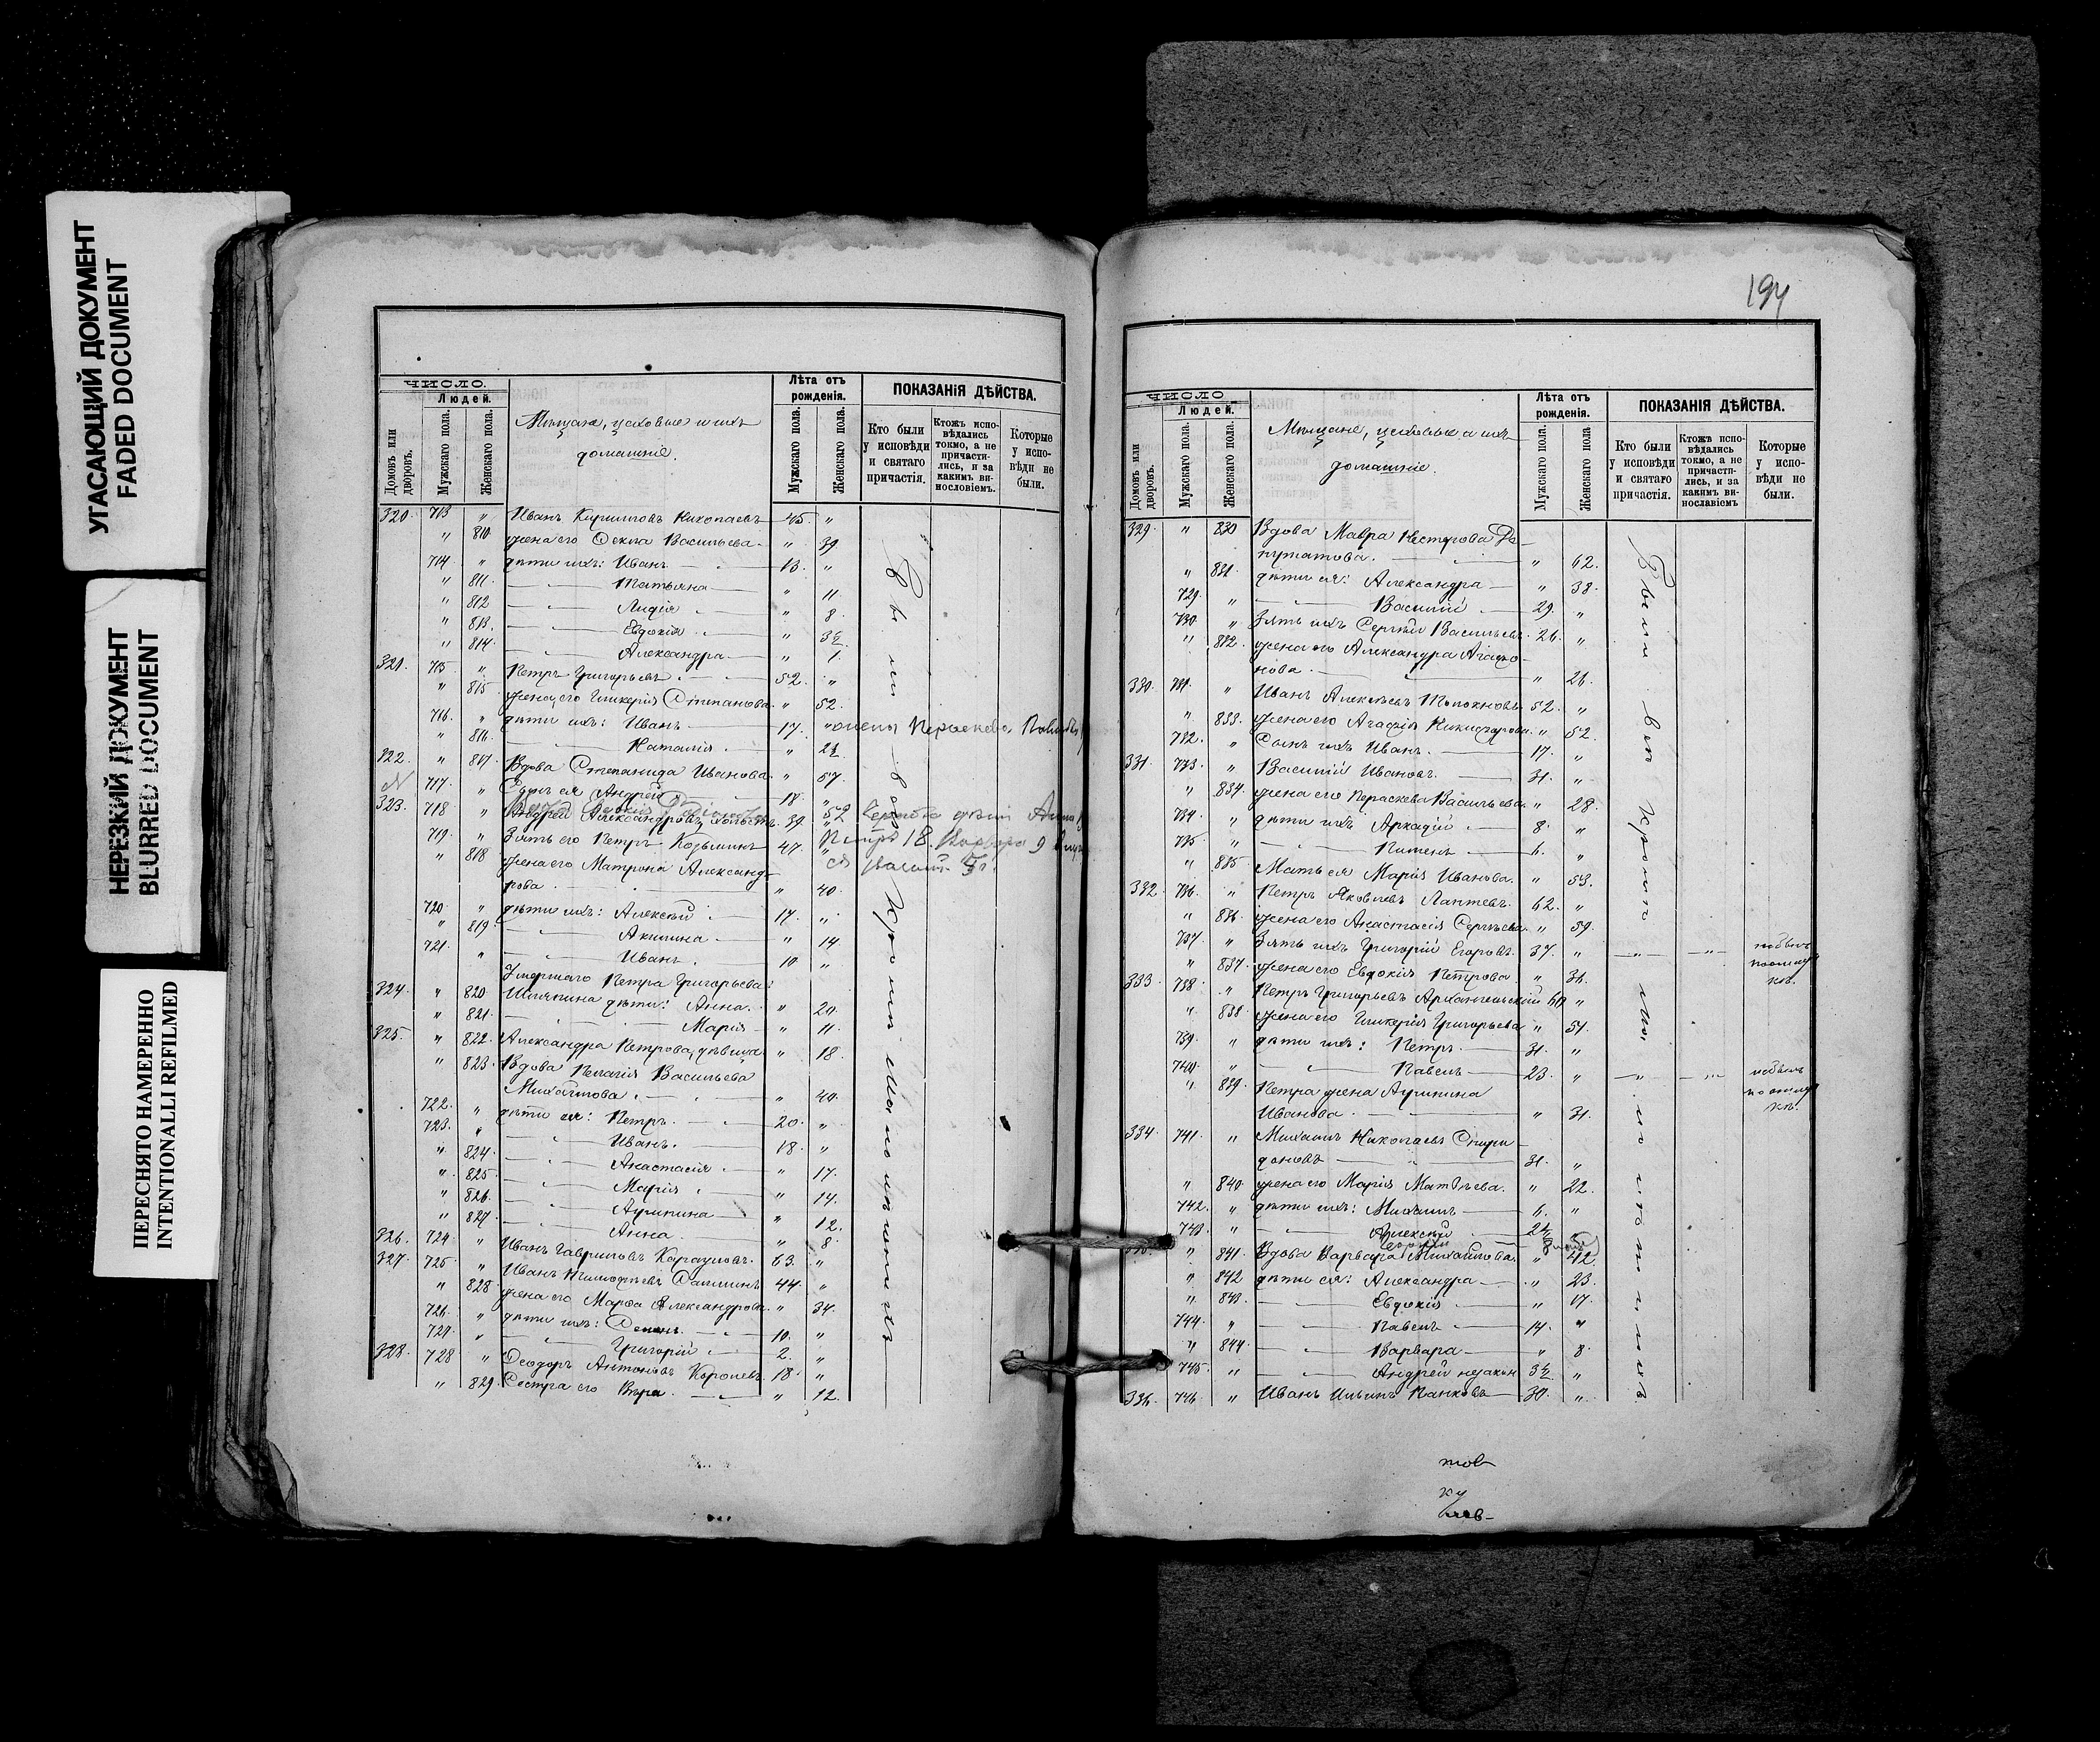 УГАСАЮЩИЙ ДОКУМЕНТ
FADED DOCUMENT
НЕРЕЗКИЙ ДОКУМЕНТ
BLURRED DOCUMENT
ПЕРЕСНЯТО НАМЕРЕННО
INTENTIONALLI REFILMED
ЧИСЛО.
Людей.
Домовъ или дворовъ.
Мужскаго пола.
Женскаго пола.
Мѣщане, цеховые и ихъ
домашніе.
Лѣта отъ рожденія.
Мужскаго пола.
Женскаго пола.
ПОКАЗАНІЯ ДѢЙСТВА.
Кто были у исповѣди и святаго причастія.
Ктожъ исповѣдались токмо, а не причастились, и за какимъ винословіемъ.
Которые у исповѣди не были.
320. 713 " Иванъ Кириловъ Николаевъ 45. "
" 810 жена его Ѳекла Васильева " 39
714 " дѣти ихъ: Иванъ 13. "
" 811 Татьяна " 11.
" 812 Лидія " 8.
" 813. Евдокія " 3½
" 814. Александра " 1.
321. 715 " Петръ Григорьевъ 52. "
" 815 жена его Гликерія Степанова " 52.
716. " дѣти ихъ: Иванъ 17. "
" 816 Наталія " 2½
322. " 817 Вдова Степанида Иванова " 57.
717. " Сынъ ея Андрей 18. "
323. 718 " Андрей Александровъ 39.
719. " Зять его Петръ Козьминъ 47. "
" 818 жена его Матрона Александ-
рова " 40.
720 " дѣти ихъ: Алексѣй 17. "
" 819 Акилина " 14.
721. " Иванъ 10 "
Умершаго Петра Григорьева
324. " 820 дѣти: Анна " 20.
" 821 Марія " 11.
325. " 822. Александра Петрова, дѣвица " 18.
" 823. Вдова Пелагія Васильева
Михайлова " 40.
722. " дѣти ея: Петръ 20. "
723. " Иванъ 18. "
" 824 Анастасія " 17.
" 825 Марія " 14.
" 826 Агрипина " 12.
" 827 Анна " 8.
326. 724 " Иванъ Гавриловъ 63. "
327. 725 " Иванъ 44. "
" 828 жена его Марѳа Александрова " 34.
726. " дѣти ихъ: 10. "
727. " Григорій 2. "
328. 728 " Ѳеодоръ Антоновъ Королевъ 18. "
" 829. Сестра его Вѣра " 12.
194
ЧИСЛО
Людей.
Домовъ или дворовъ.
Мужскаго пола.
Женскаго пола.
Мѣщане, цеховые и ихъ
домашніе.
Лѣта отъ рожденія.
Мужскаго пола.
Женскаго пола
ПОКАЗАНІЯ ДѢЙСТВА.
Кто были у исповѣди и святаго причастія.
Ктожъ исповѣдались токмо, а не причастились, и за какимъ винословіемъ
Которые у исповѣди не были.
329. " 830 Вдова Мавра Нестерова Де-
путатова. " 62.
" 831. дѣти ея: Александра " 38.
729. " Василій 29. "
730. " Зять ихъ Сергѣй Васильевъ 26. "
" 832. жена его Александра Агаѳо-
нова " 26.
330. 731. " Иванъ Алексѣевъ Толокновъ 52. "
" 833. жена его Агафія Никифорова " 52.
732. " Сынъ ихъ Иванъ 17. "
331. 733. " Василій Ивановъ 31. "
" 834. жена его Параскева Васильева " 28.
734. " дѣти ихъ Аркадій 8. "
735. " Пименъ 6. "
" 835 Мать ея Марія Иванова. " 53.
332. 736. " Петръ Яковлевъ Лаптевъ. 62. "
" 836. жена его Анастасія Сергѣева " 59.
737. " Зять ихъ Григорій Егоровъ 37. "
" 837. жена его Евдокія Петрова " 31.
333. 738. " Петръ Григорьевъ Архангельскій 60 "
" 838. жена его Гликерія Григорьева " 51.
739. " дѣти ихъ: Петръ 31. "
740. " Павелъ 23. "
" 839 Петра жена Агрипина
Иванова " 31.
334. 741. " Михаилъ Николаевъ Спири-
доновъ 31. "
" 840. жена его Марія Матвѣева. " 22.
742. " дѣти ихъ: Михаилъ 6. "
743. " Алексѣй 2½
" 841. Вдова Варвара Михайлова " 42.
" 842 дѣти ея: Александра " 23.
" 843. Евдокія " 17.
744. " Павелъ 14. "
" 844. Варвара " 8.
745. " Андрей незакон 3½ "
336. 746. " Иванъ Ильинъ Панковъ 30. "